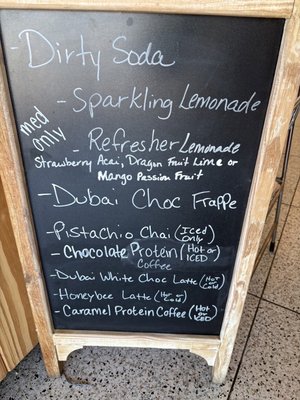 - Dirty Soda
- Sparkling Lemonade
med only
- Refresher Lemonade
Strawberry Acai, Dragon Fruit Lime or
Mango Passion Fruit
- Dubai Choc Frappe
- Pistachio Chai (Iced Only)
- Chocolate Protein Coffee (Hot or ICED)
- Dubai White Choc Latte (Hot or Cold)
- Honeybee Latte (Hot or Cold)
- Caramel Protein Coffee (Hot or ICED)